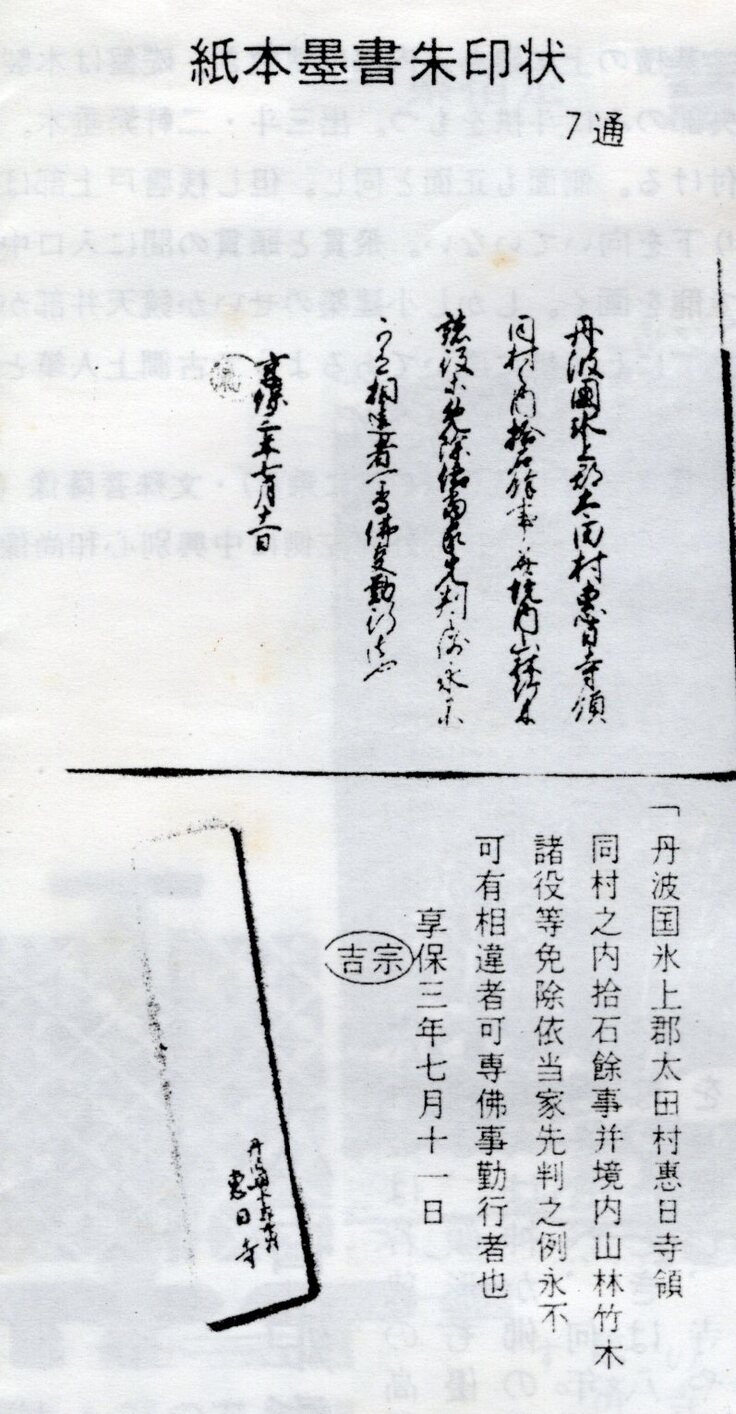 紙本墨書朱印状
7通
丹波國氷上郡太田村惠日寺領
同村之内拾石餘事并境内山林竹木
諸役等免除依當家先判之例永不
可有相違者可專佛事勤行者也
享保三年七月十一日
「丹波国氷上郡太田村惠日寺領
同村之内拾石餘事并境内山林竹木
諸役等免除依当家先判之例永不
可有相違者可専佛事勤行者也
享保三年七月十一日
吉宗
惠日寺